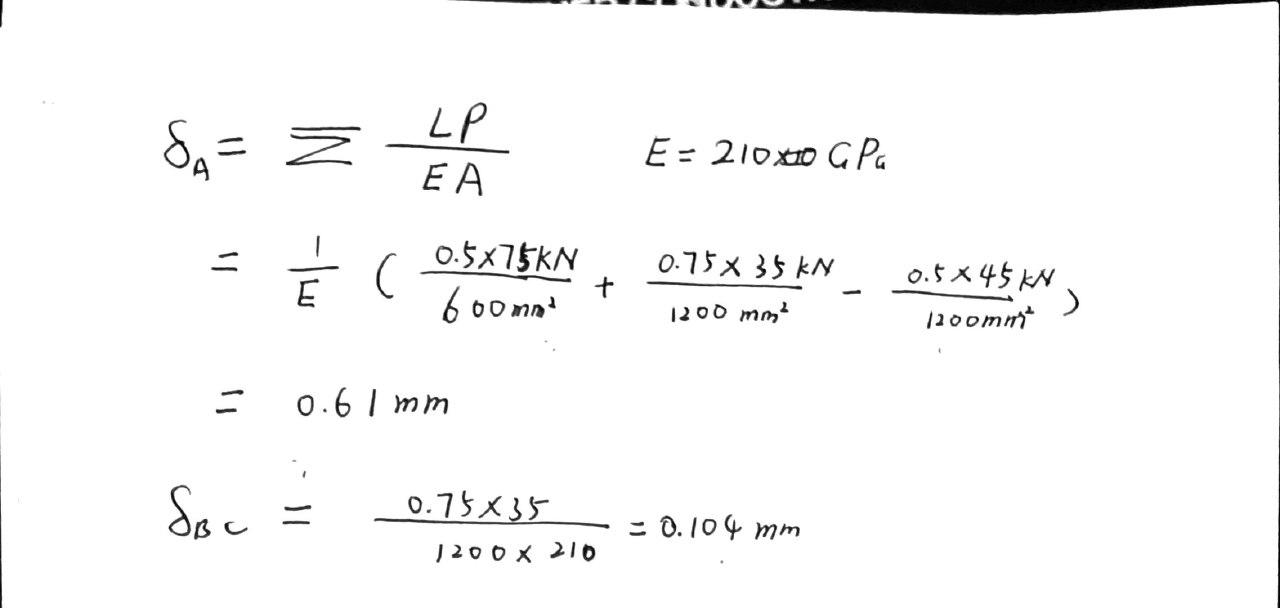 δA = Σ LP / EA   E = 210 GPa
= 1/E ( 0.5×75kN / 600mm² + 0.75×35kN / 1200mm² - 0.5×45kN / 1200mm² )
= 0.61mm
δBC = 0.75×35 / 1200×210 = 0.104mm